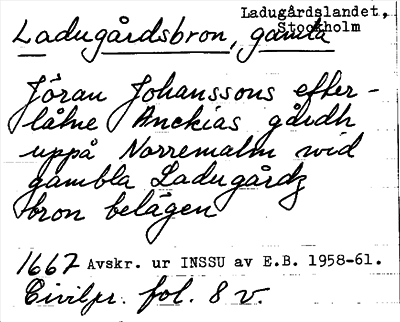 Ladugårdslandet,
Stockholm
Ladugårdsbron, gamla
Jöran Johanssons efter-
låtne Anckias gårdh
uppå Norremalm wid
gambla Ladugårdz
bron belägen
1667 Avskr. ur INSSU av E.B. 1958-61.
Civilpr. fol. 8 v.